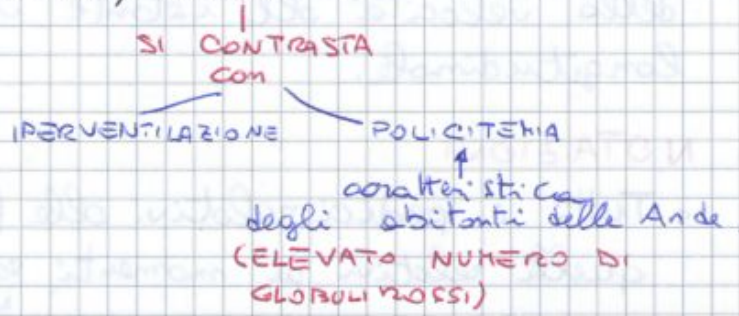 SI CONTRASTA
con
IPERVENTILAZIONE POLICITEMIA
caratteristica
degli abitanti delle Ande
(ELEVATO NUMERO DI
GLOBULI ROSSI)